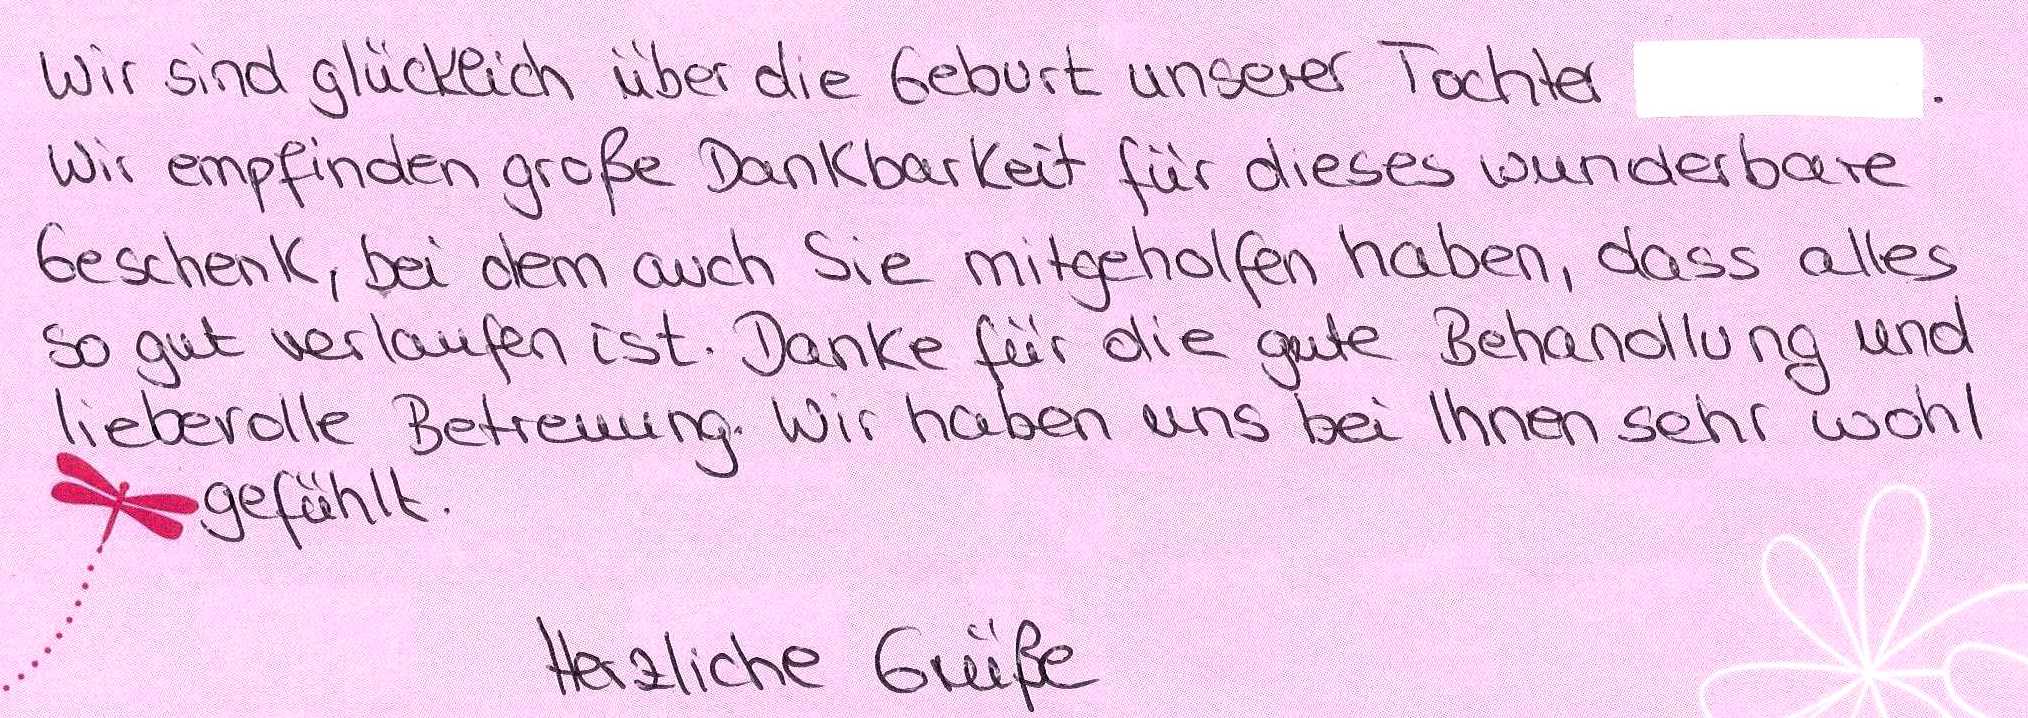 Wir sind glücklich über die Geburt unserer Tochter .
Wir empfinden große Dankbarkeit für dieses wunderbare
Geschenk, bei dem auch Sie mitgeholfen haben, dass alles
so gut verlaufen ist. Danke für die gute Behandlung und
liebevolle Betreuung. Wir haben uns bei Ihnen sehr wohl
gefühlt.
Herzliche Grüße